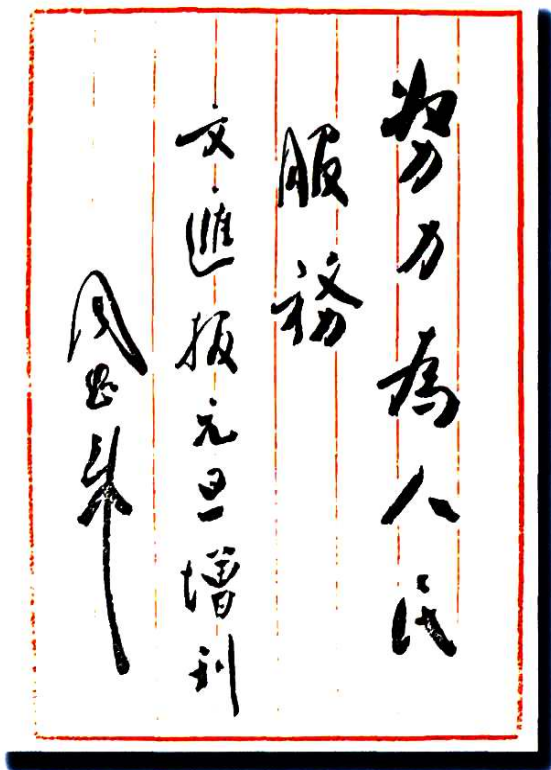 努力為人民
服務
文滙报元旦增刊
周恩来